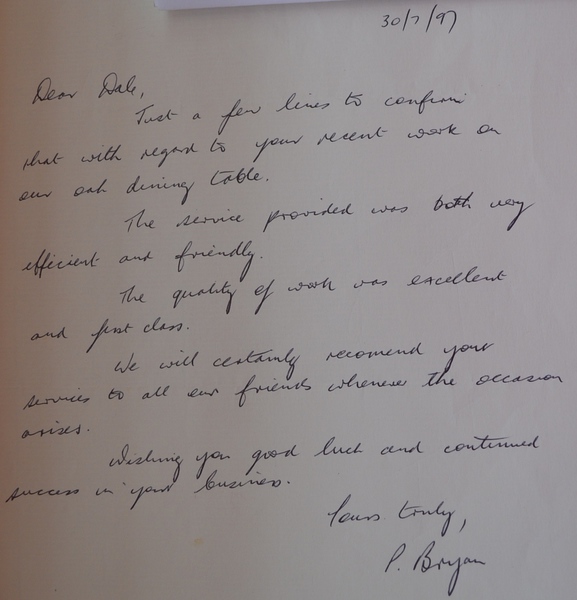 30/7/97
Dear Dale,
Just a few lines to confirm
that with regard to your recent work on
our oak dining table.
The service provided was both very
efficient and friendly.
The quality of work was excellent
and first class.
We will certainly recomend your
services to all our friends whenever the occasion
arises.
Wishing you good luck and continued
success in your business.
Yours truly,
P. Bryan